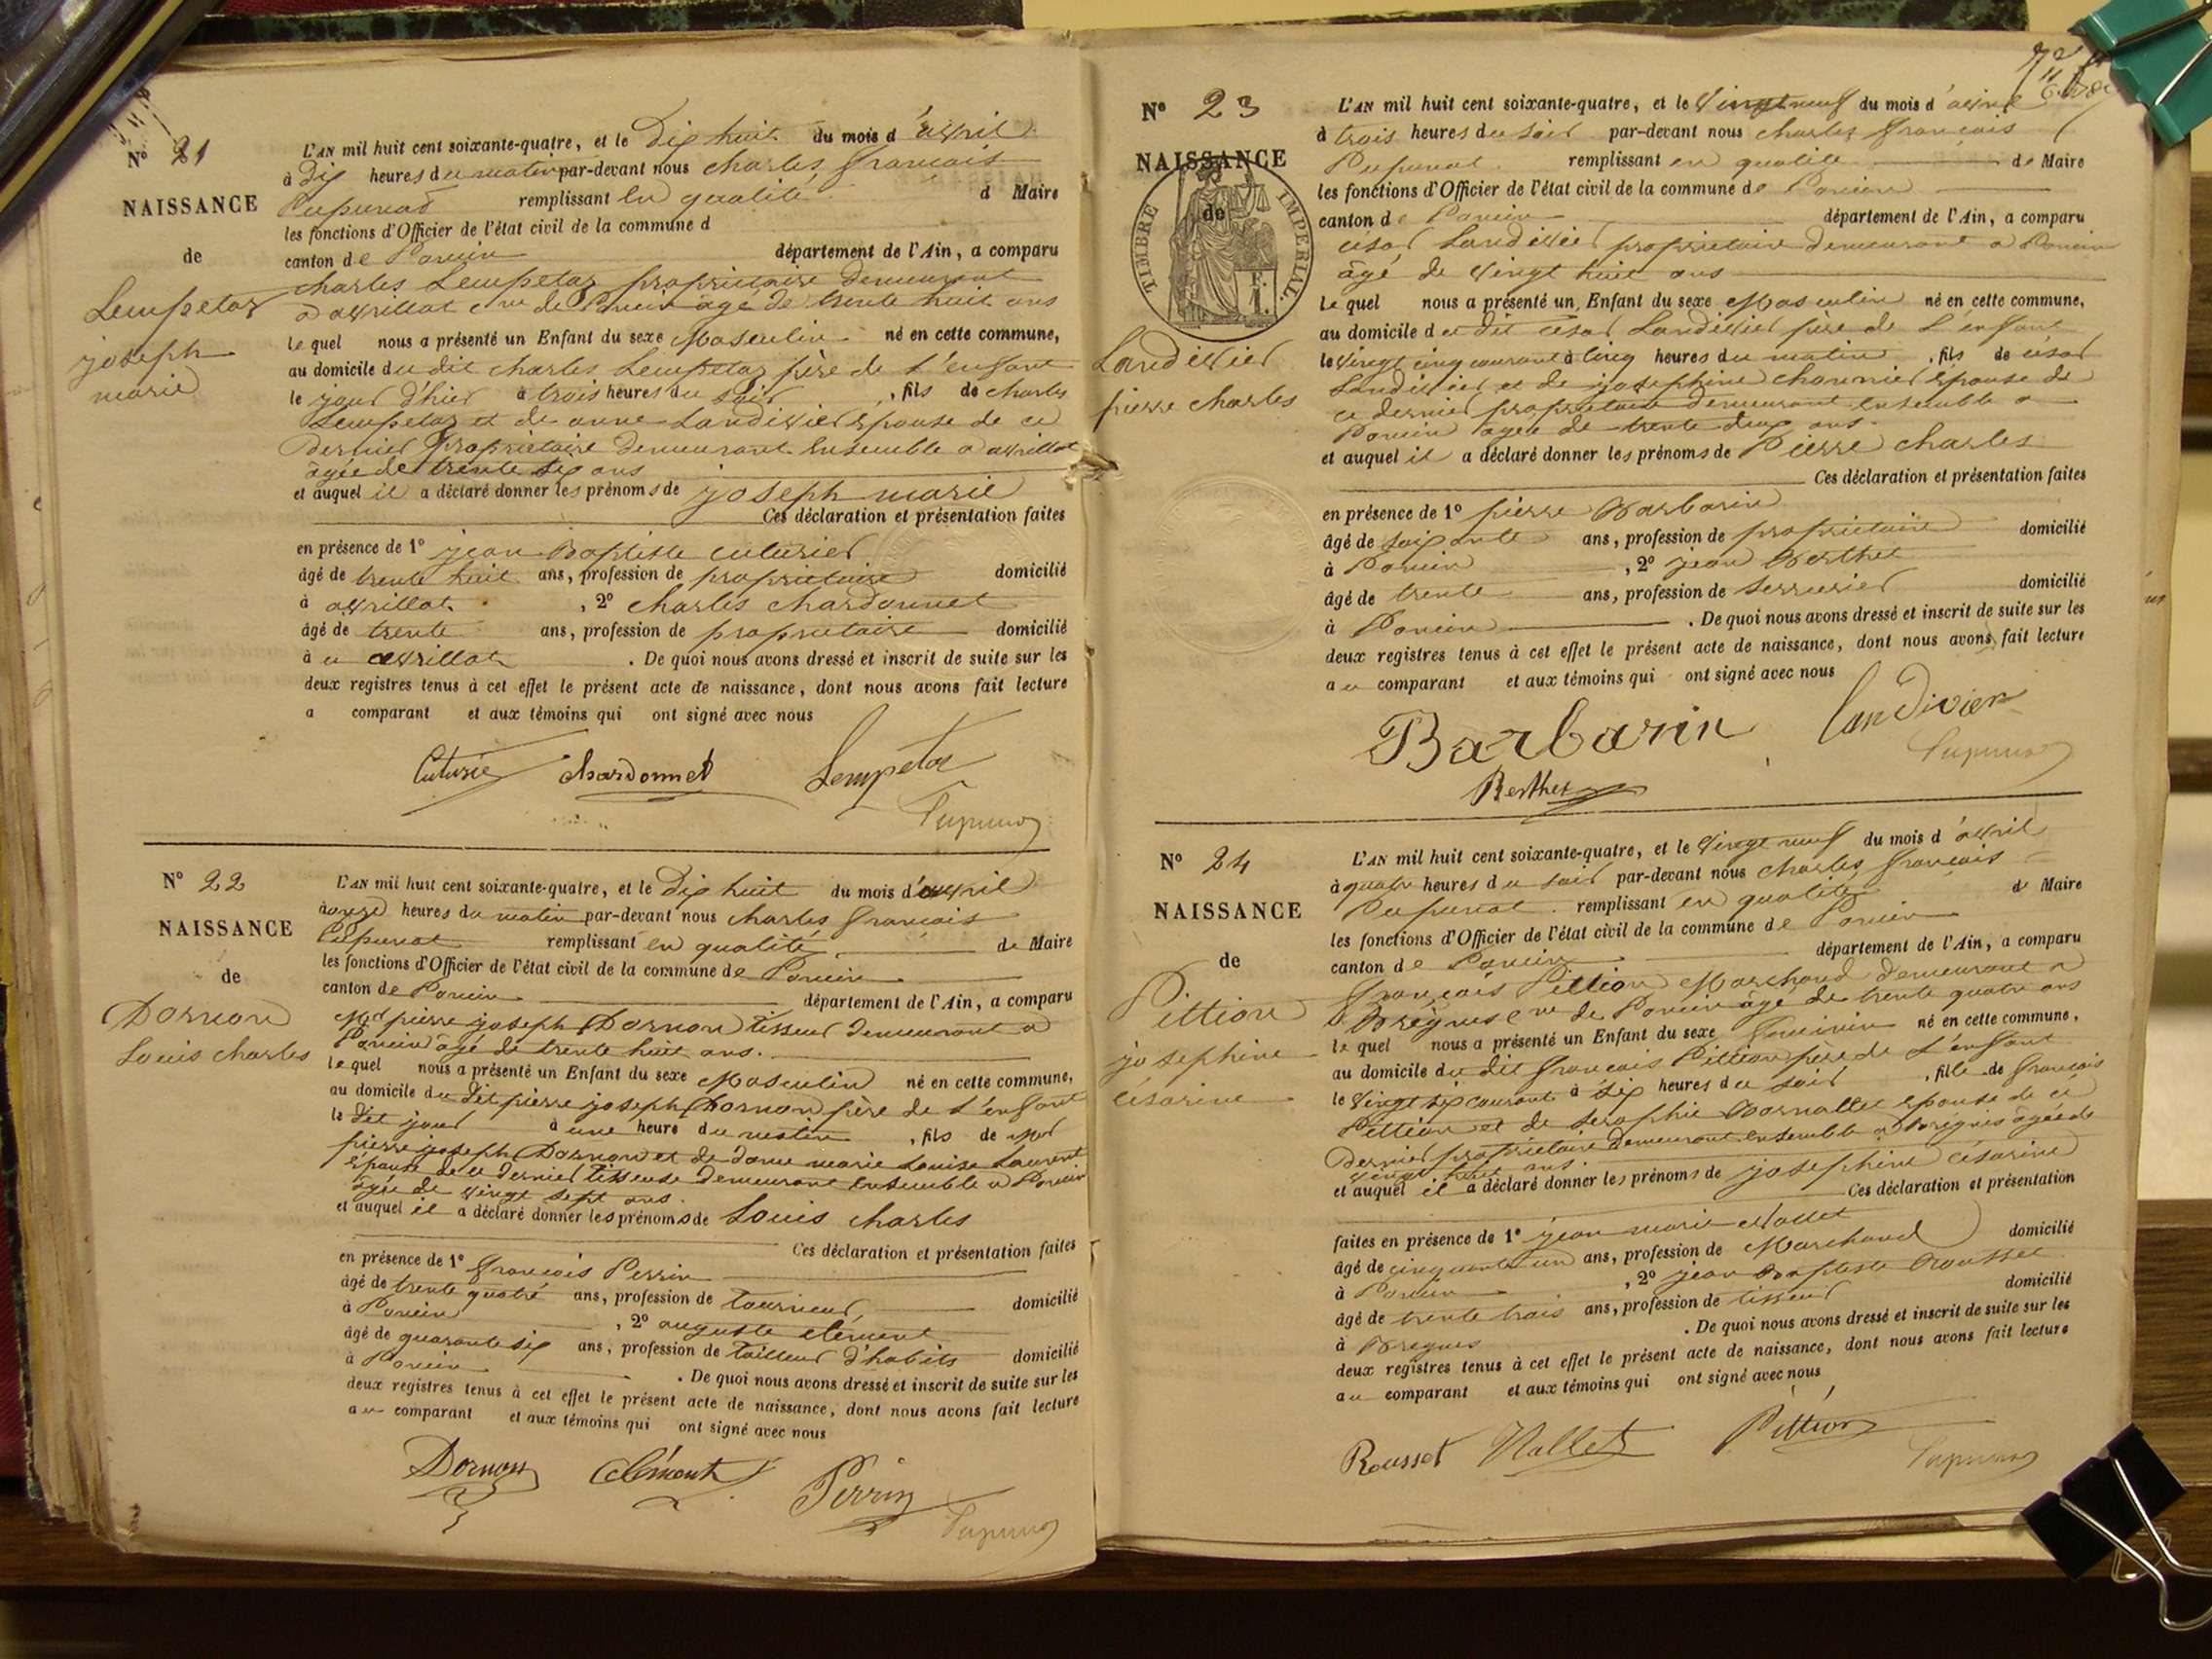 Nº 21
NAISSANCE
de
Lempetaz
joseph
marie
L'AN mil huit cent soixante-quatre, et le Dix huit du mois d'avril
à Dix heures du matin par-devant nous charles françois
Pupunat remplissant en qualité d Maire
les fonctions d'Officier de l'état civil de la commune d
canton de Poncin département de l'Ain, a comparu
charles Lempetaz propriétaire demeurant
a avrillat cne de Poncin âgé de trente huit ans
le quel nous a présenté un Enfant du sexe Masculin né en cette commune,
au domicile du dit charles Lempetaz père de l'enfant
le jour d'hier à trois heures du soir, fils de charles
Lempetaz et de anne Landivier épouse de ce
Dernier propriétaire Demeurant ensemble a avrillat
âgée de trente six ans
et auquel il a déclaré donner les prénoms de joseph marie
Ces déclaration et présentation faites
en présence de 1º jean Baptiste cuturier
âgé de trente huit ans, profession de propriétaire domicilié
à avrillat, 2º charles chardonnet
âgé de trente ans, profession de propriétaire domicilié
à a avrillat. De quoi nous avons dressé et inscrit de suite sur les
deux registres tenus à cet effet le présent acte de naissance, dont nous avons fait lecture
a comparant et aux témoins qui ont signé avec nous
Cuturie chardonnet Lempetaz
Pupunat
Nº 22
NAISSANCE
de
Dornon
Louis charles
L'AN mil huit cent soixante-quatre, et le Dix huit du mois d'avril
à onze heures du matin par-devant nous charles françois
Pupunat remplissant en qualité de Maire
les fonctions d'Officier de l'état civil de la commune de Poncin
canton de Poncin département de l'Ain, a comparu
Md pierre joseph Dornon tisseur demeurant a
Poncin âgé de trente huit ans.
le quel nous a présenté un Enfant du sexe Masculin né en cette commune,
au domicile du dit pierre joseph Dornon père de l'enfant
le dit jour à une heure du matin, fils de
pierre joseph Dornon et de dame marie Louise Laurent
épouse de ce dernier tisseuse demeurant ensemble a Poncin
âgée de vingt sept ans.
et auquel il a déclaré donner les prénoms de Louis charles
Ces déclaration et présentation faites
en présence de 1º françois Perrin
âgé de trente quatre ans, profession de tourneur domicilié
à Poncin, 2º auguste clément
âgé de quarante six ans, profession de tailleur d'habits domicilié
à Poncin. De quoi nous avons dressé et inscrit de suite sur les
deux registres tenus à cet effet le présent acte de naissance, dont nous avons fait lecture
au comparant et aux témoins qui ont signé avec nous
Dornon Clément Perrin
Pupunat
Nº 23
NAISSANCE
de
TIMBRE IMPERIAL.
Landivier
pierre charles
L'AN mil huit cent soixante-quatre, et le Vingt neuf du mois d'avril
à trois heures du soir par-devant nous charles françois
Pupunat remplissant en qualité de Maire
les fonctions d'Officier de l'état civil de la commune de Poncin
canton de Poncin département de l'Ain, a comparu
césar Landivier propriétaire demeurant a Poncin
âgé de vingt huit ans
le quel nous a présenté un Enfant du sexe Masculin né en cette commune,
au domicile du dit césar Landivier père de l'enfant
le vingt cinq courant à cinq heures du matin, fils de césar
Landivier et de josephine épouse de
ce dernier propriétaire demeurant ensemble a
Poncin âgée de trente deux ans.
et auquel il a déclaré donner les prénoms de Pierre charles
Ces déclaration et présentation faites
en présence de 1º pierre Barbarin
âgé de soixante ans, profession de propriétaire domicilié
à Poncin, 2º jean Berthet
âgé de trente ans, profession de serrurier domicilié
à Poncin. De quoi nous avons dressé et inscrit de suite sur les
deux registres tenus à cet effet le présent acte de naissance, dont nous avons fait lecture
au comparant et aux témoins qui ont signé avec nous
Barbarin Landivier
Berthet Pupunat
Nº 24
NAISSANCE
de
Pittion
josephine
césarine
L'AN mil huit cent soixante-quatre, et le Vingt neuf du mois d'avril
à quatre heures du soir par-devant nous charles françois
Pupunat remplissant en qualité de Maire
les fonctions d'Officier de l'état civil de la commune de Poncin
canton de Poncin département de l'Ain, a comparu
françois Pittion Marchand demeurant a
Brégnes cne de Poncin âgé de trente quatre ans
le quel nous a présenté un Enfant du sexe féminin né en cette commune,
au domicile du dit françois Pittion père de l'enfant
le vingt six courant à six heures du soir, fille de françois
Pittion et de seraphie épouse de ce
Dernier propriétaire demeurant ensemble a Brégnes âgée de
vingt huit ans.
et auquel il a déclaré donner les prénoms de josephine césarine
Ces déclaration et présentation
faites en présence de 1º jean marie Vallet
âgé de cinquante un ans, profession de Marchand domicilié
à Poncin, 2º jean Baptiste Rousset
âgé de trente trois ans, profession de tisseur domicilié
à Bregnes. De quoi nous avons dressé et inscrit de suite sur les
deux registres tenus à cet effet le présent acte de naissance, dont nous avons fait lecture
au comparant et aux témoins qui ont signé avec nous
Rousset Vallet Pittion
Pupunat